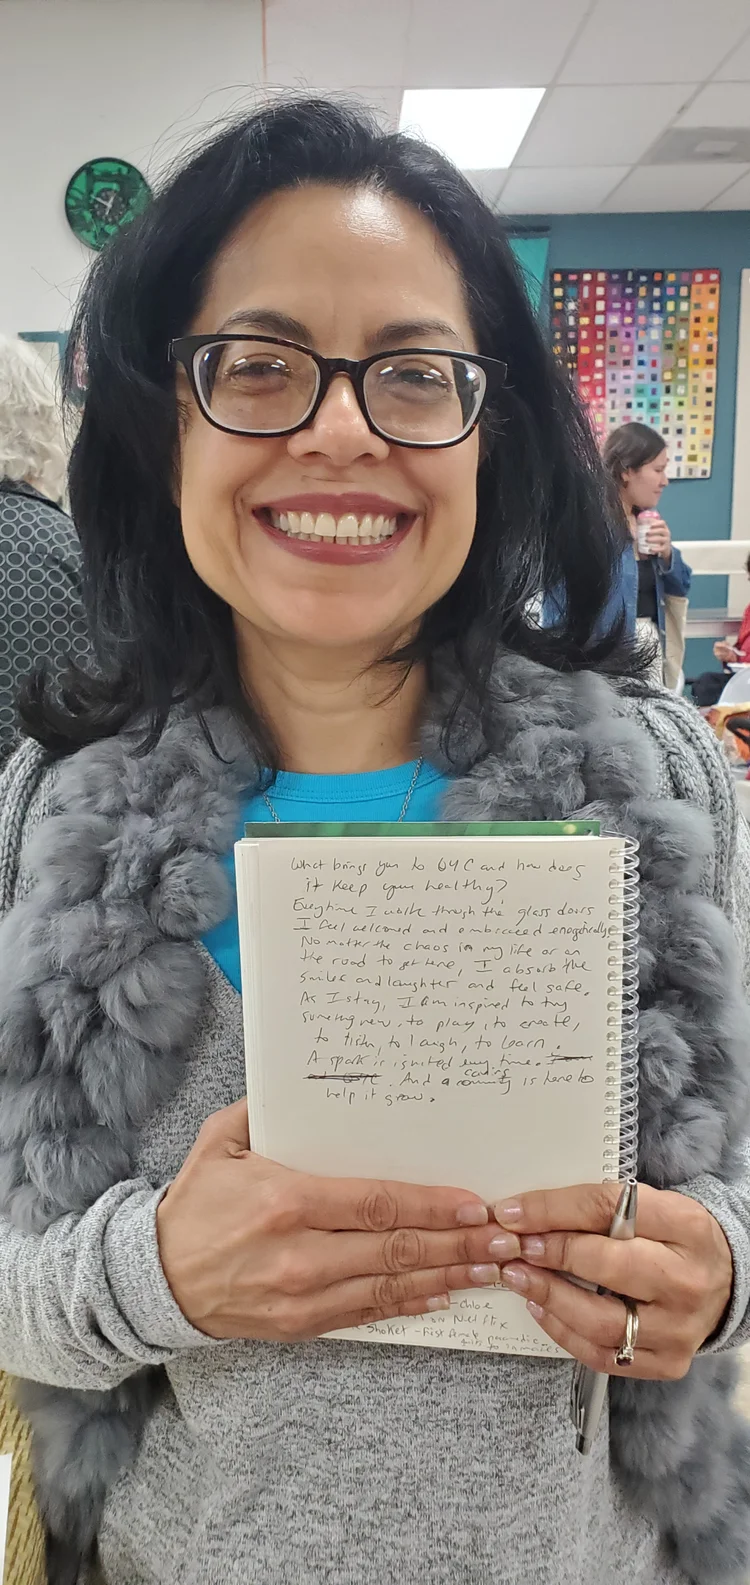 What brings you to GYC and how does
it keep you healthy?
Everytime I walk through the glass doors
I feel welcomed and embraced energetically
No matter the chaos in my life or on
the road to get here, I absorb the
smiles and laughter and feel safe.
As I stay, I am inspired to try
something new, to play, to create,
to listen, to laugh, to learn.
A spark is ignited every time.
caring
And a community is here to
help it grow.
-Chloe
on Netflix
Shoket - First female paramedic